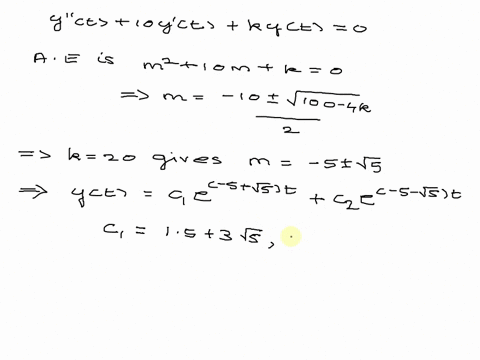 y''(t) + 10y'(t) + ky(t) = 0
A.E is m² + 10m + k = 0
=> m = (-10 ± √(100-4k))/2
=> k = 20 gives m = -5 ± √5
=> y(t) = c₁ e^(-5+√5)t + c₂ e^(-5-√5)t
c₁ = 1.5 + 3√5,